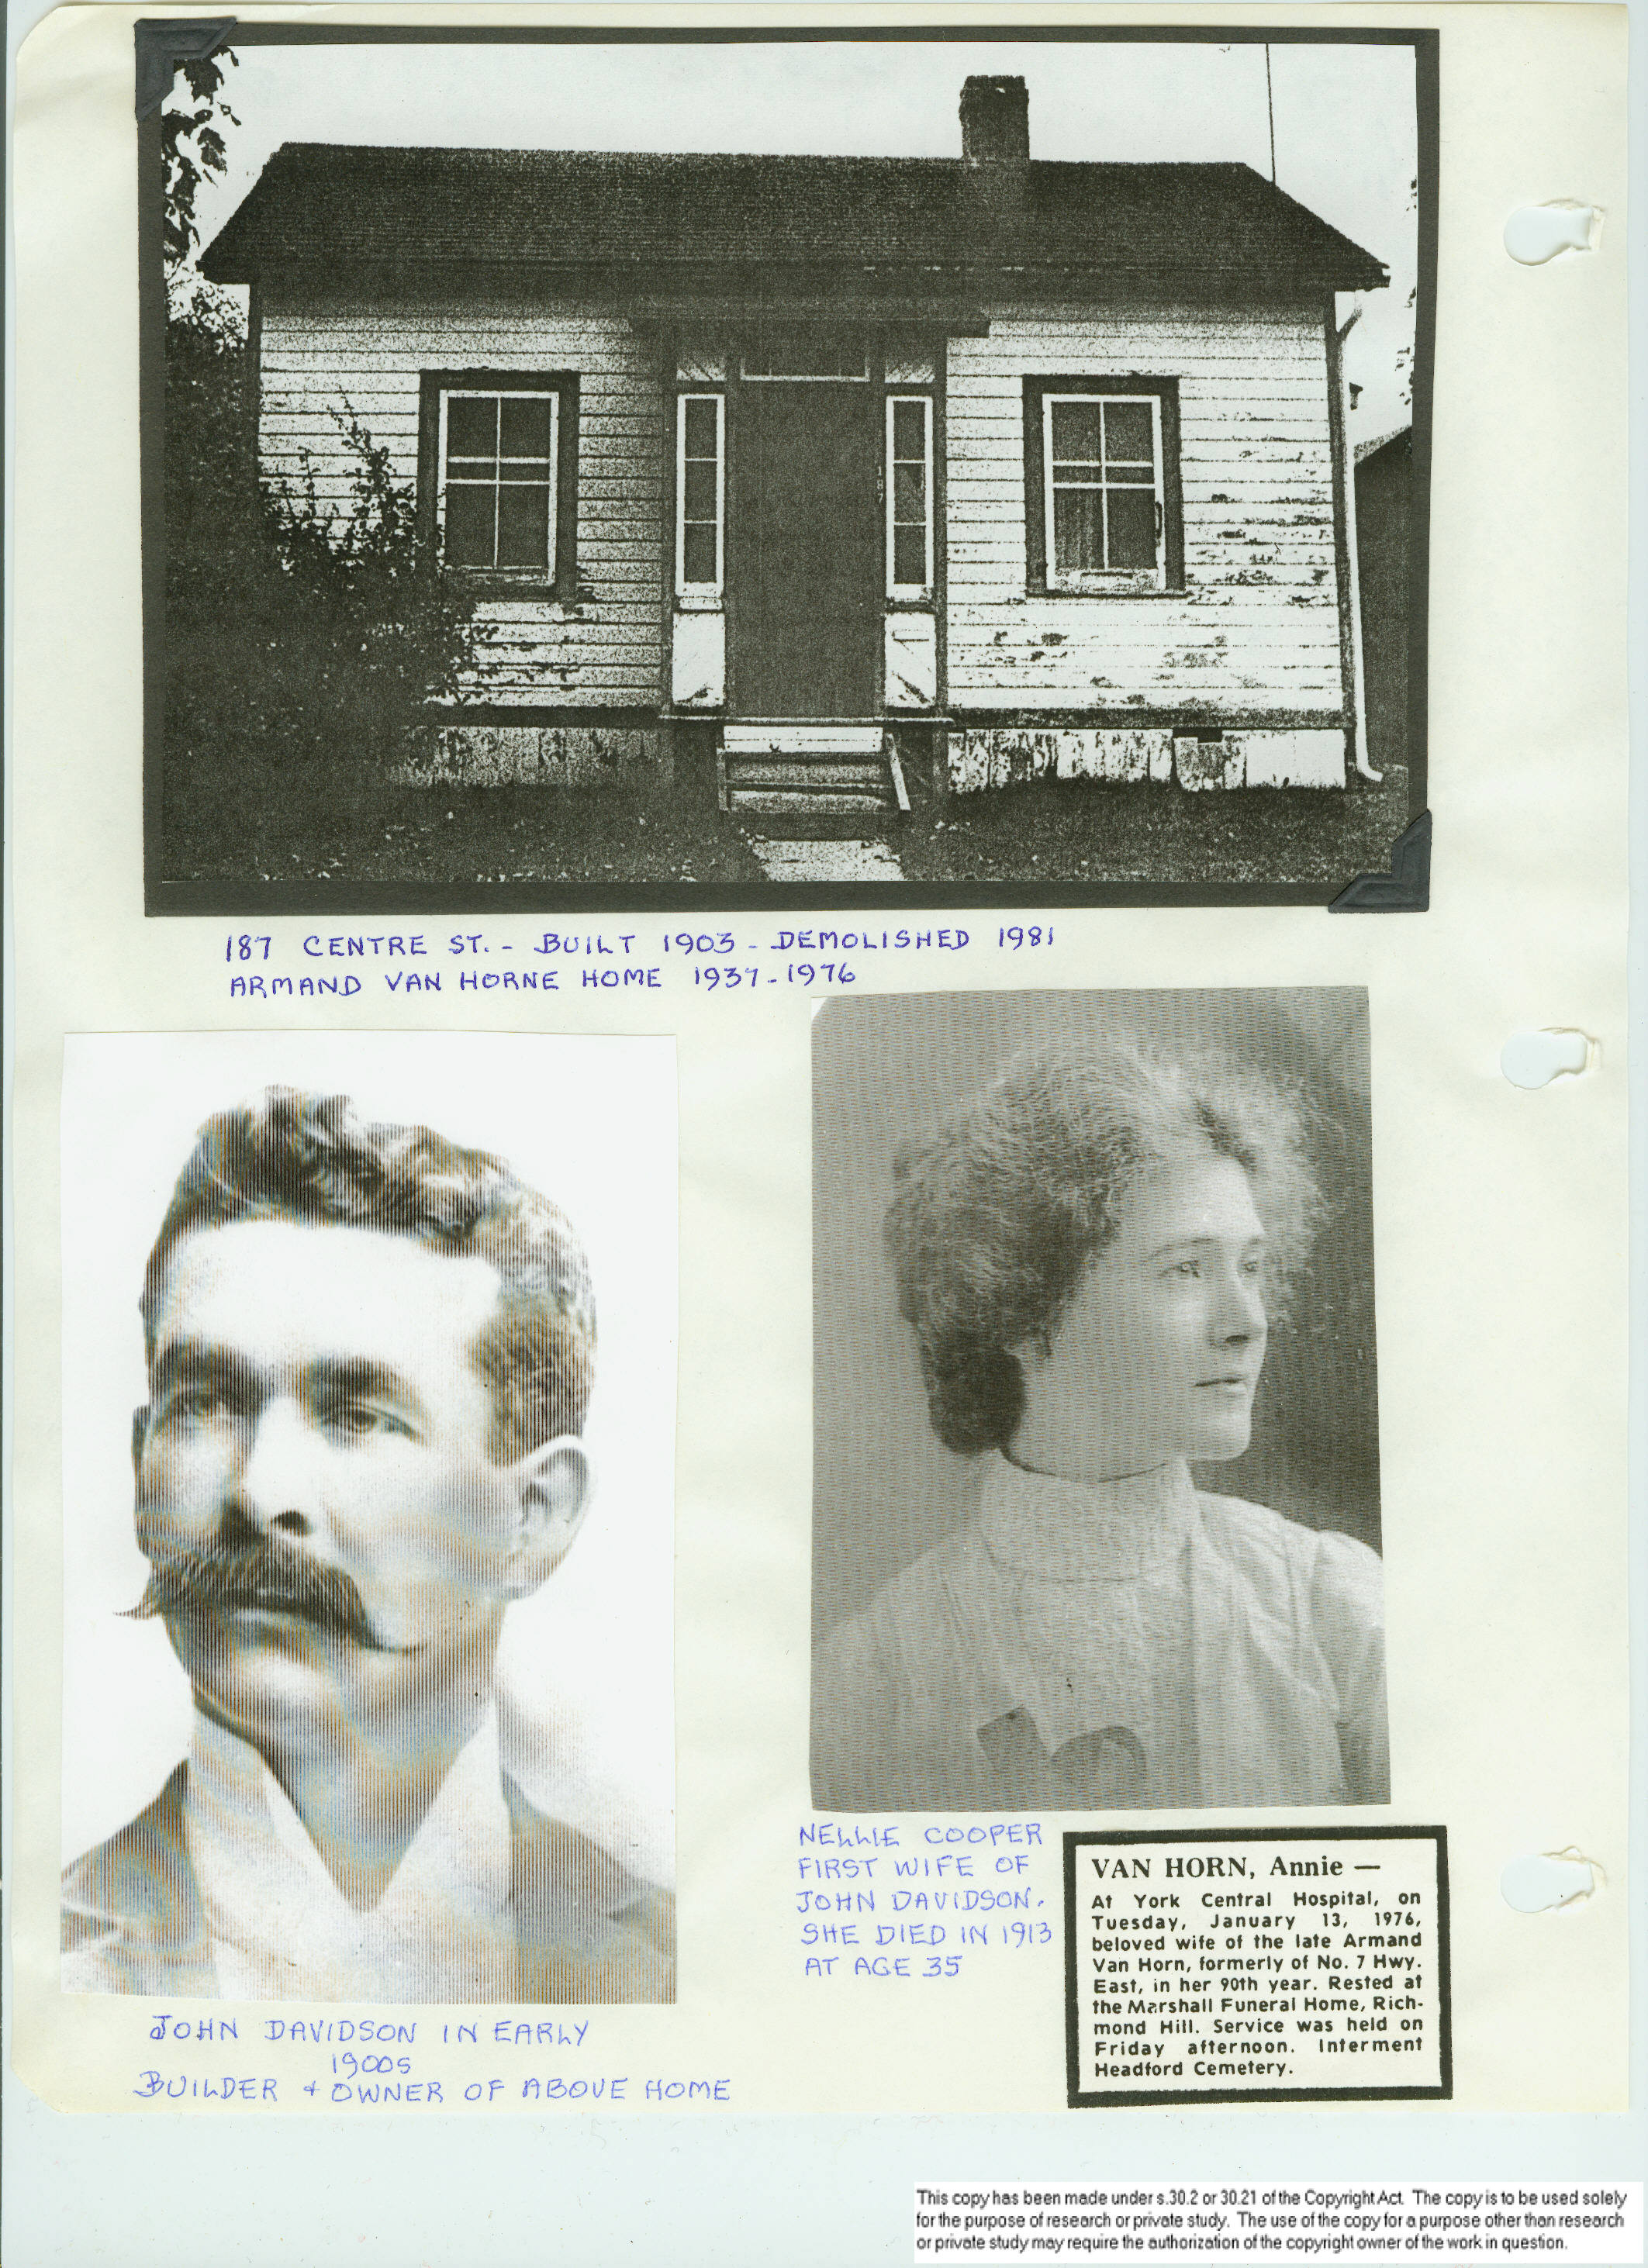 187
187 CENTRE ST. - BUILT 1903 - DEMOLISHED 1981
ARMAND VAN HORNE HOME 1937-1976
NELLIE COOPER
FIRST WIFE OF
JOHN DAVIDSON.
SHE DIED IN 1913
AT AGE 35
VAN HORN, Annie —
At York Central Hospital, on
Tuesday, January 13, 1976,
beloved wife of the late Armand
Van Horn, formerly of No. 7 Hwy.
East, in her 90th year. Rested at
the Marshall Funeral Home, Rich-
mond Hill. Service was held on
Friday afternoon. Interment
Headford Cemetery.
JOHN DAVIDSON IN EARLY
1900S
BUILDER + OWNER OF ABOVE HOME
This copy has been made under s.30.2 or 30.21 of the Copyright Act. The copy is to be used solely
for the purpose of research or private study. The use of the copy for a purpose other than research
or private study may require the authorization of the copyright owner of the work in question.